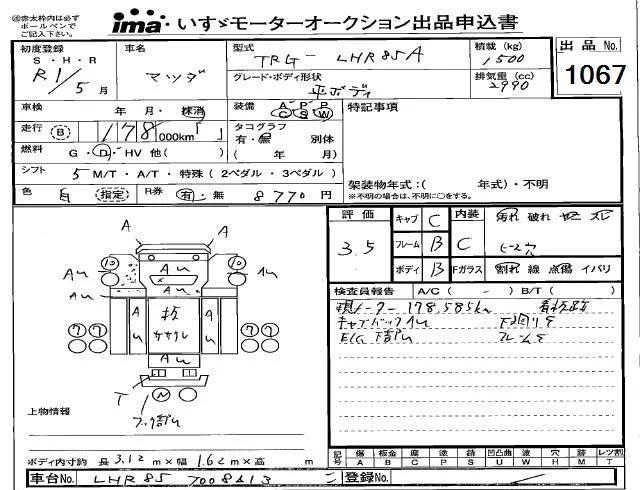 ※赤太枠内は必ず
ボールペンで
ご記入下さい。
ima いすゞモーターオークション出品申込書
初度登録 車名 型式 TRG-LHR85A 積載 (kg) 1500 出品No.
S・H・R
R1/5月 マツダ グレード・ボディ形状 平ボディ 排気量 (cc) 2990 1067
車検 年 月・抹消 装備 A C P S P W 特記事項
走行 B 178,000km タコグラフ
有・無 別体
燃料 G・D・HV 他( ) ( 年 月)
シフト 5 M/T・A/T・特殊 (2ペダル・3ペダル) 架装物年式:( 年式)・不明
※不明の場合は、不明に○をする。
色 白 (指定) R券 有・無 8770円
評価 3.5 キャブ C 内装 C 汚れ 破れ ヤニ スレ
フレーム B ビス穴
ボディ B Fガラス 割れ 線 点傷 イバリ
検査員報告 A/C ( - ) B/T ( )
現メーター 178,585km 看板跡
キャブバックUし 下廻りS
E/G下部U フレームS
A A
⑩ ⑩
AU AU AU
AU AU
AU 板 AU
ササクレ
⑦ ⑦ ⑦ ⑦
AU
T N
フック部U
上物情報
ボディ内寸約 長 3.12 m×幅 1.62 m×高 m
記号 傷 板金 腐 塗 錆 凹凸曲 波 穴 跡 レツ割
A B C P S U W H M T
車台No. LHR85 7008613 登録No.